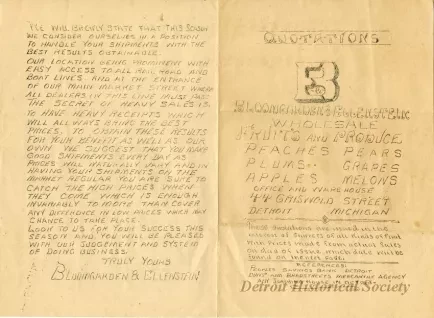 WE WILL BRIEFLY STATE THAT THIS SEASON
WE CONSIDER OURSELVES IN A POSITION
TO HANDLE YOUR SHIPMENTS WITH THE
BEST RESULTS OBTAINABLE.
OUR LOCATION BEING PROMINENT WITH
EASY ACCESS TO ALL RAIL ROAD AND
BOAT LINES AND AT THE ENTRANCE
OF OUR MAIN MARKET STREET WHERE
ALL DEALERS IN THIS LINE MUST PASS
THE SECRET OF HEAVY SALES IS
TO HAVE HEAVY RECEIPTS WHICH
WILL ALWAYS BRING THE BEST
PRICES. TO OBTAIN THESE RESULTS
FOR YOUR BENEFIT AS WELL AS OUR
OWN WE SUGGEST THAT YOU MAKE
GOOD SHIPMENTS EVERY DAY AS
PRICES WILL NATURALLY VARY AND IN
HAVING YOUR SHIPMENTS ON THE
MARKET REGULAR YOU ARE SURE TO
CATCH THE HIGH PRICES WHEN
THEY COME WHICH IS ENOUGH
INVARIABLY TO MORE THAN COVER
ANY DIFFERENCE IN LOW PRICES WHICH MAY
CHANCE TO TAKE PLACE.
LOOK TO US FOR YOUR SUCCESS THIS
SEASON AND YOU WILL BE PLEASED
WITH OUR JUDGEMENT AND SYSTEM
OF DOING BUSINESS.
TRULY YOURS
BLOOMGARDEN & ELLENSTEIN
QUOTATIONS
BLOOMGARDEN & ELLENSTEIN
WHOLESALE
FRUITS AND PRODUCE
PEACHES PEARS
PLUMS GRAPES
APPLES MELONS
OFFICE AND WAREHOUSE
44 GRISWOLD STREET
DETROIT MICHIGAN
These quotations are mailed in the
interest of Shippers of all kinds of Fruit
with Prices made from actual Sales
on day of issue which date will be
found on inside page.
REFERENCES:
PEOPLES SAVINGS BANK DETROIT
DUN'S AND BRADSTREETS MERCANTILE AGENCY
Detroit Historical Society